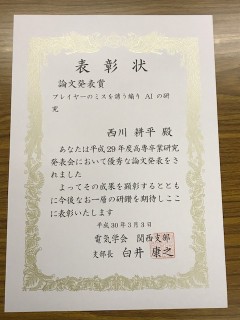 表彰状
論文発表賞
プレイヤーのミスを誘う煽り AI の研
究
西川 耕平 殿
あなたは平成 29 年度高専卒業研究
発表会において優秀な論文発表をさ
れました
よってその成果を顕彰するととも
に今後なお一層の研鑽を期待しここ
に表彰いたします
平成 30 年 3 月 3 日
電気学会 関西支部
支部長 白井 康之